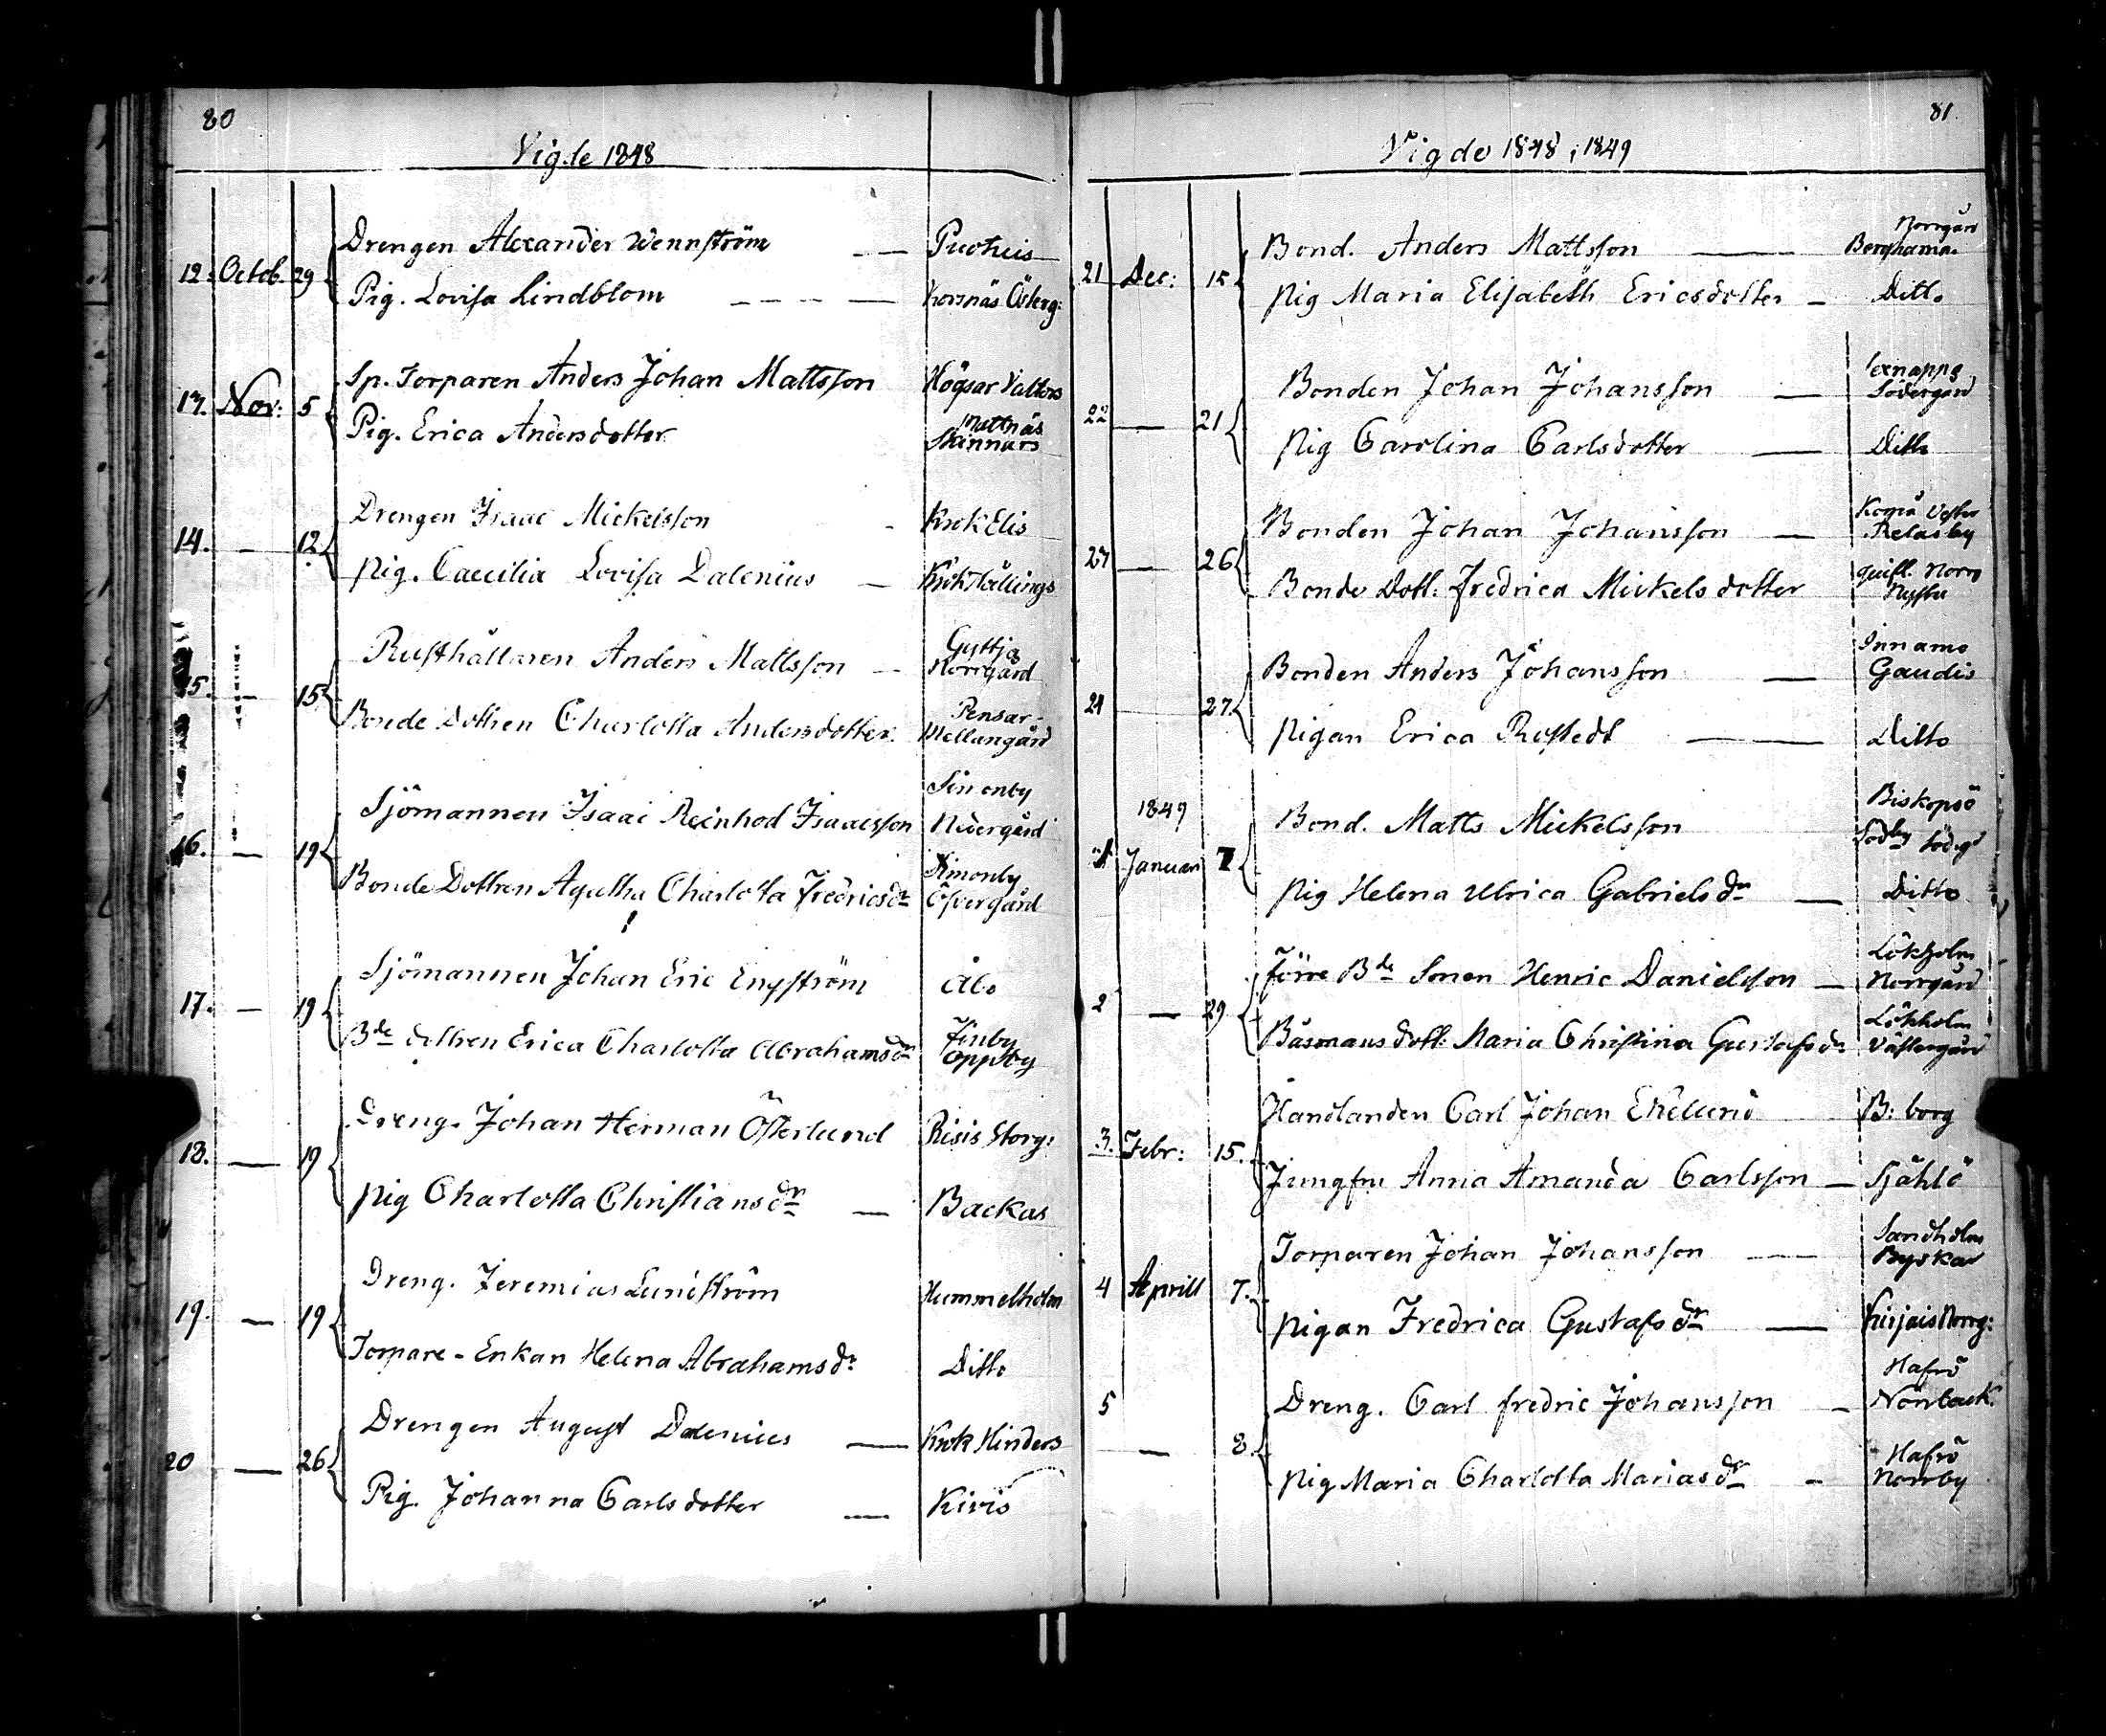 80
Vigde 1848
12. Octob. 29 Drengen Alexander Wennström — Puotuis
Pig. Lovisa Lindblom — Korsnäs Österg:
13. Nov: 5 Sp. Torparen Anders Johan Mattsson Högsar Valters
Pig. Erica Andersdotter Mattnäs Skinnars
14. — 12 Drengen Isaac Mickelsson Krok Elis
Pig. Caecilia Lovisa Dalenius — Krok Tällings
15. — 15 Rusthållaren Anders Mattsson — Gyttja Norrgård
Bonde Dottren Charlotta Andersdotter. Pensar Mellangård
16. — 19 Sjömannen Isaac Reinhod Isaacsson Simonby Nedergård
Bonde Dottren Agatha Charlotta Fredricsdr Simonby Öfvergård
17. — 19 Sjömannen Johan Eric Engström Åbo
Bde dottren Erica Charlotta Abrahamsdr Finby Oppsby
18. — 19 Dreng. Johan Herman Österlund Risis Storg:
Pig Charlotta Christiansdr — Backas
19. — 19 Dreng. Jeremias Lundström Hummelholm
Torpare-Enkan Helena Abrahamsdr Ditto
20 — 26 Drengen August Dalenius — Krok Hinders
Pig. Johanna Carlsdotter — Kivis
81.
Vigde 1848, 1849
21 Dec: 15 Bond. Anders Mattsson — Norrgård Berghamn
Pig Maria Elisabeth Ericsdotter — Ditto
22 — 21 Bonden Johan Johansson — Lexnappa Södergård
Pig Carolina Carlsdotter — Ditto
23 — 26 Bonden Johan Johansson — Korpo Vester Retasby
Bonde Dott. Fredrica Mickelsdotter Norr
24 27. Bonden Anders Johansson — Innamo Gaudis
Pigan Erica Rostedt — Ditto
1849
1 Januari 7 Bond. Matts Mickelsson Biskopsö Södby Södg
Pig Helena Ulrica Gabrielsdr — Ditto
2 — 29 Förre Bde Sonen Henric Danielsson — Lökholm Norrgård
Båsmans dott. Maria Christina Gustafsdr Lökholm Västergård
3. Febr: 15. Handlanden Carl Johan Ekelund B:borg
Jungfru Anna Amanda Carlsson — Själö
4 Aprill 7. Torparen Johan Johansson — Sandholm Byskar
Pigan Fredrica Gustafsdr — Kirjais Norrg:
5 — 8. Dreng. Carl Fredric Johansson — Hafrö Norrback
Pig Maria Charlotta Mariasdr — Hafrö Norrby